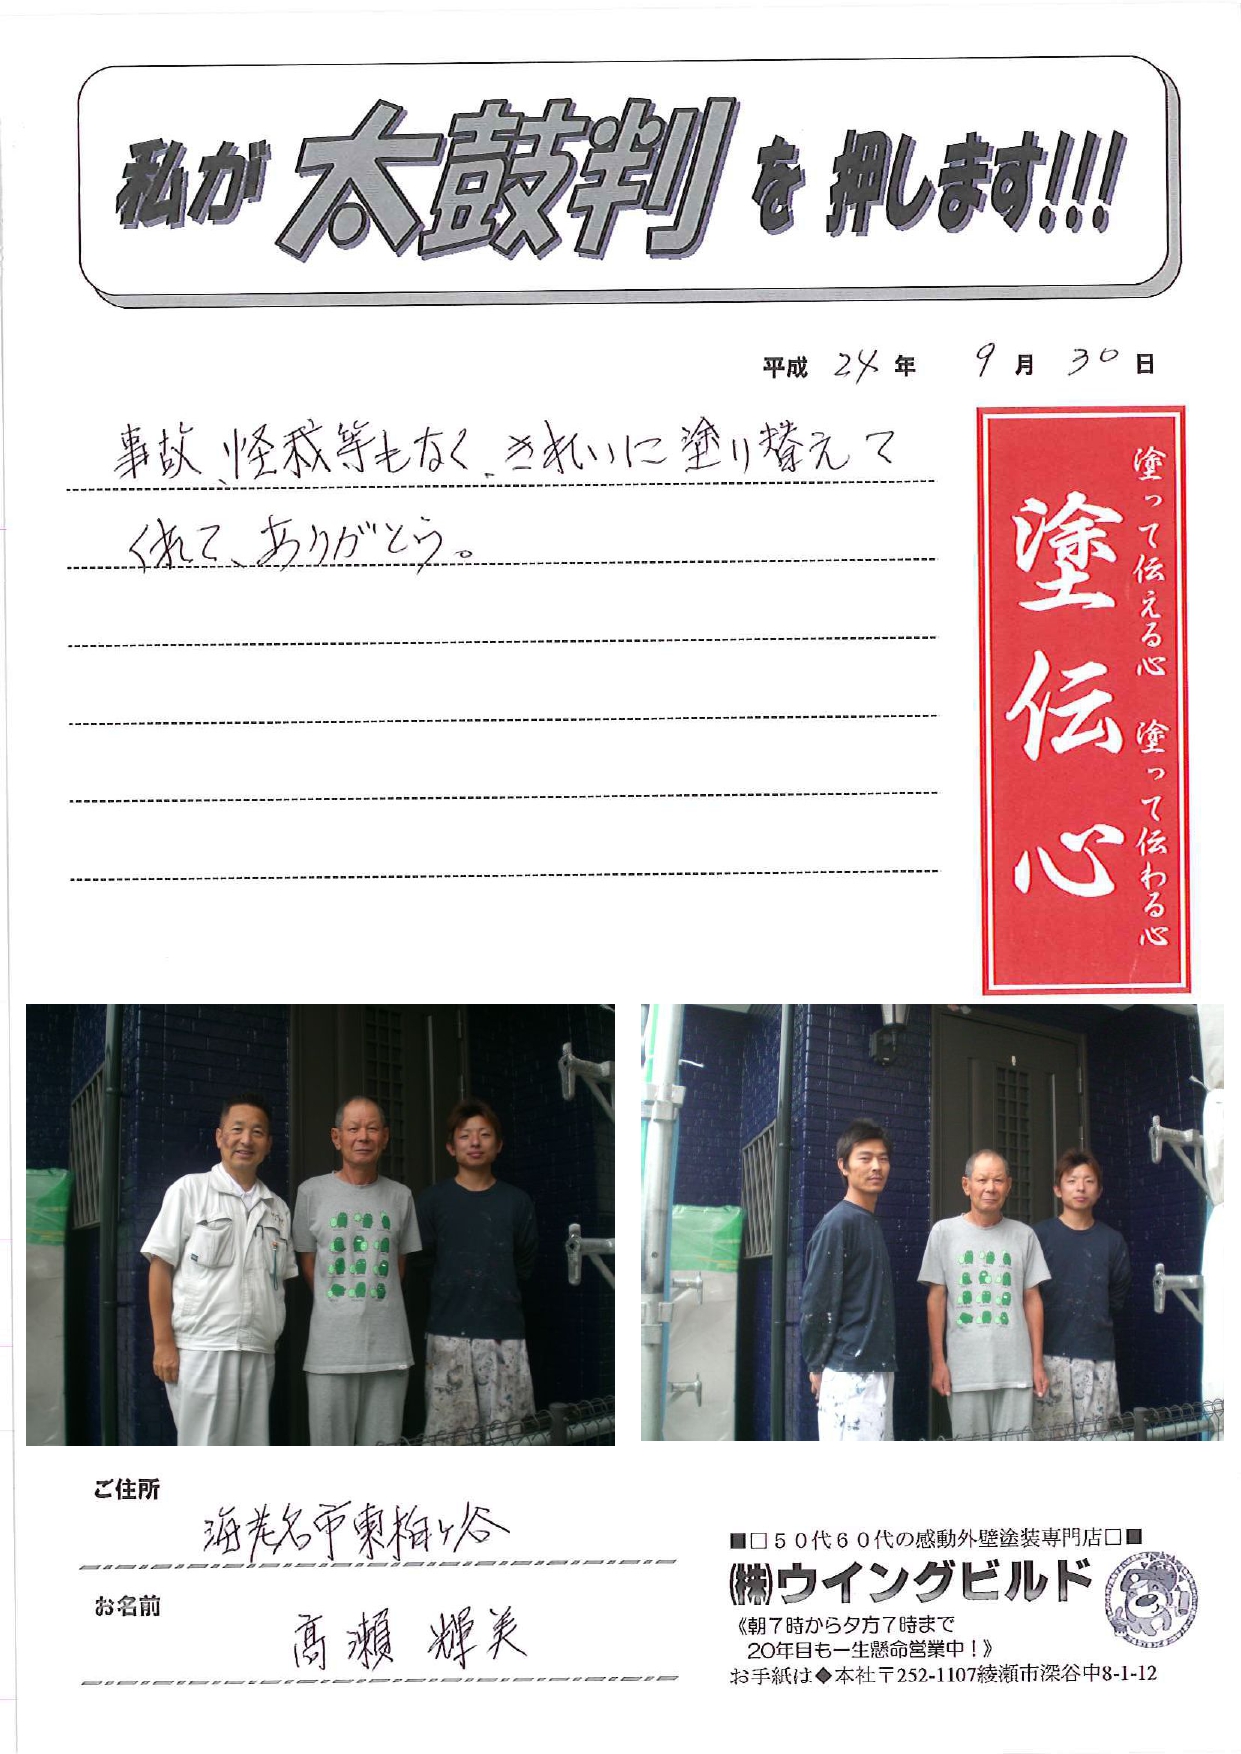 私が太鼓判を押します!!!
平成 24年 9月 30日
事故、怪我等もなく、きれいに塗り替えて
くれて、ありがとう。
塗って伝える心 塗って伝わる心
塗伝心
ご住所
海老名市東柏ヶ谷
お名前
高瀬 輝美
■□５０代６０代の感動外壁塗装専門店□■
㈱ウイングビルド
《朝７時から夕方７時まで
20年目も一生懸命営業中！》
お手紙は◆本社〒252-1107綾瀬市深谷中8-1-12